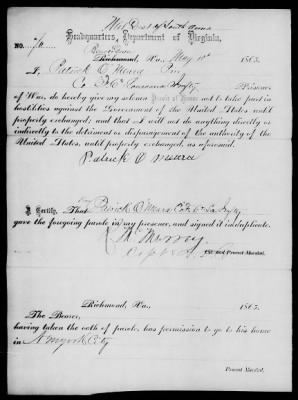 Mil Dist of South Ala
Headquarters, Department of Virginia,
No.
Richmond, Va., May 10 1865
I, Patrick O Meara
Co F 6" Louisiana Infty Prisoner
of War, do hereby give my solemn Parole of Honor not to take part in
hostilities against the Government of the United States until
properly exchanged; and that I will not do anything directly or
indirectly to the detriment or disparagement of the authority of
the United States, until properly exchanged, as aforesaid.
Patrick O Meara
I Certify, That Patrick O'Meara Co F 6" La Infty
gave the foregoing parole in my presence, and signed it in duplicate.
Capt &
Provost Marshal.
Richmond, Va., 1865.
The Bearer,
having taken the oath of parole, has permission to go to his home
in N myork City
Provost Marshal.